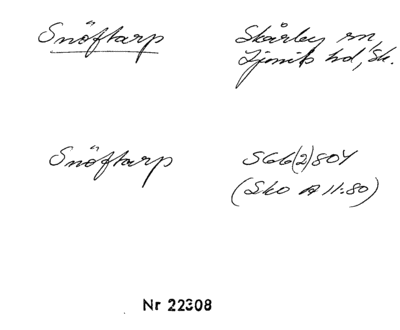 Snöftarp
Skårby sn,
Ljunits hd, Sk.
Snöftarp
SGG(2)804
(Sko A 11:80)
Nr 22308